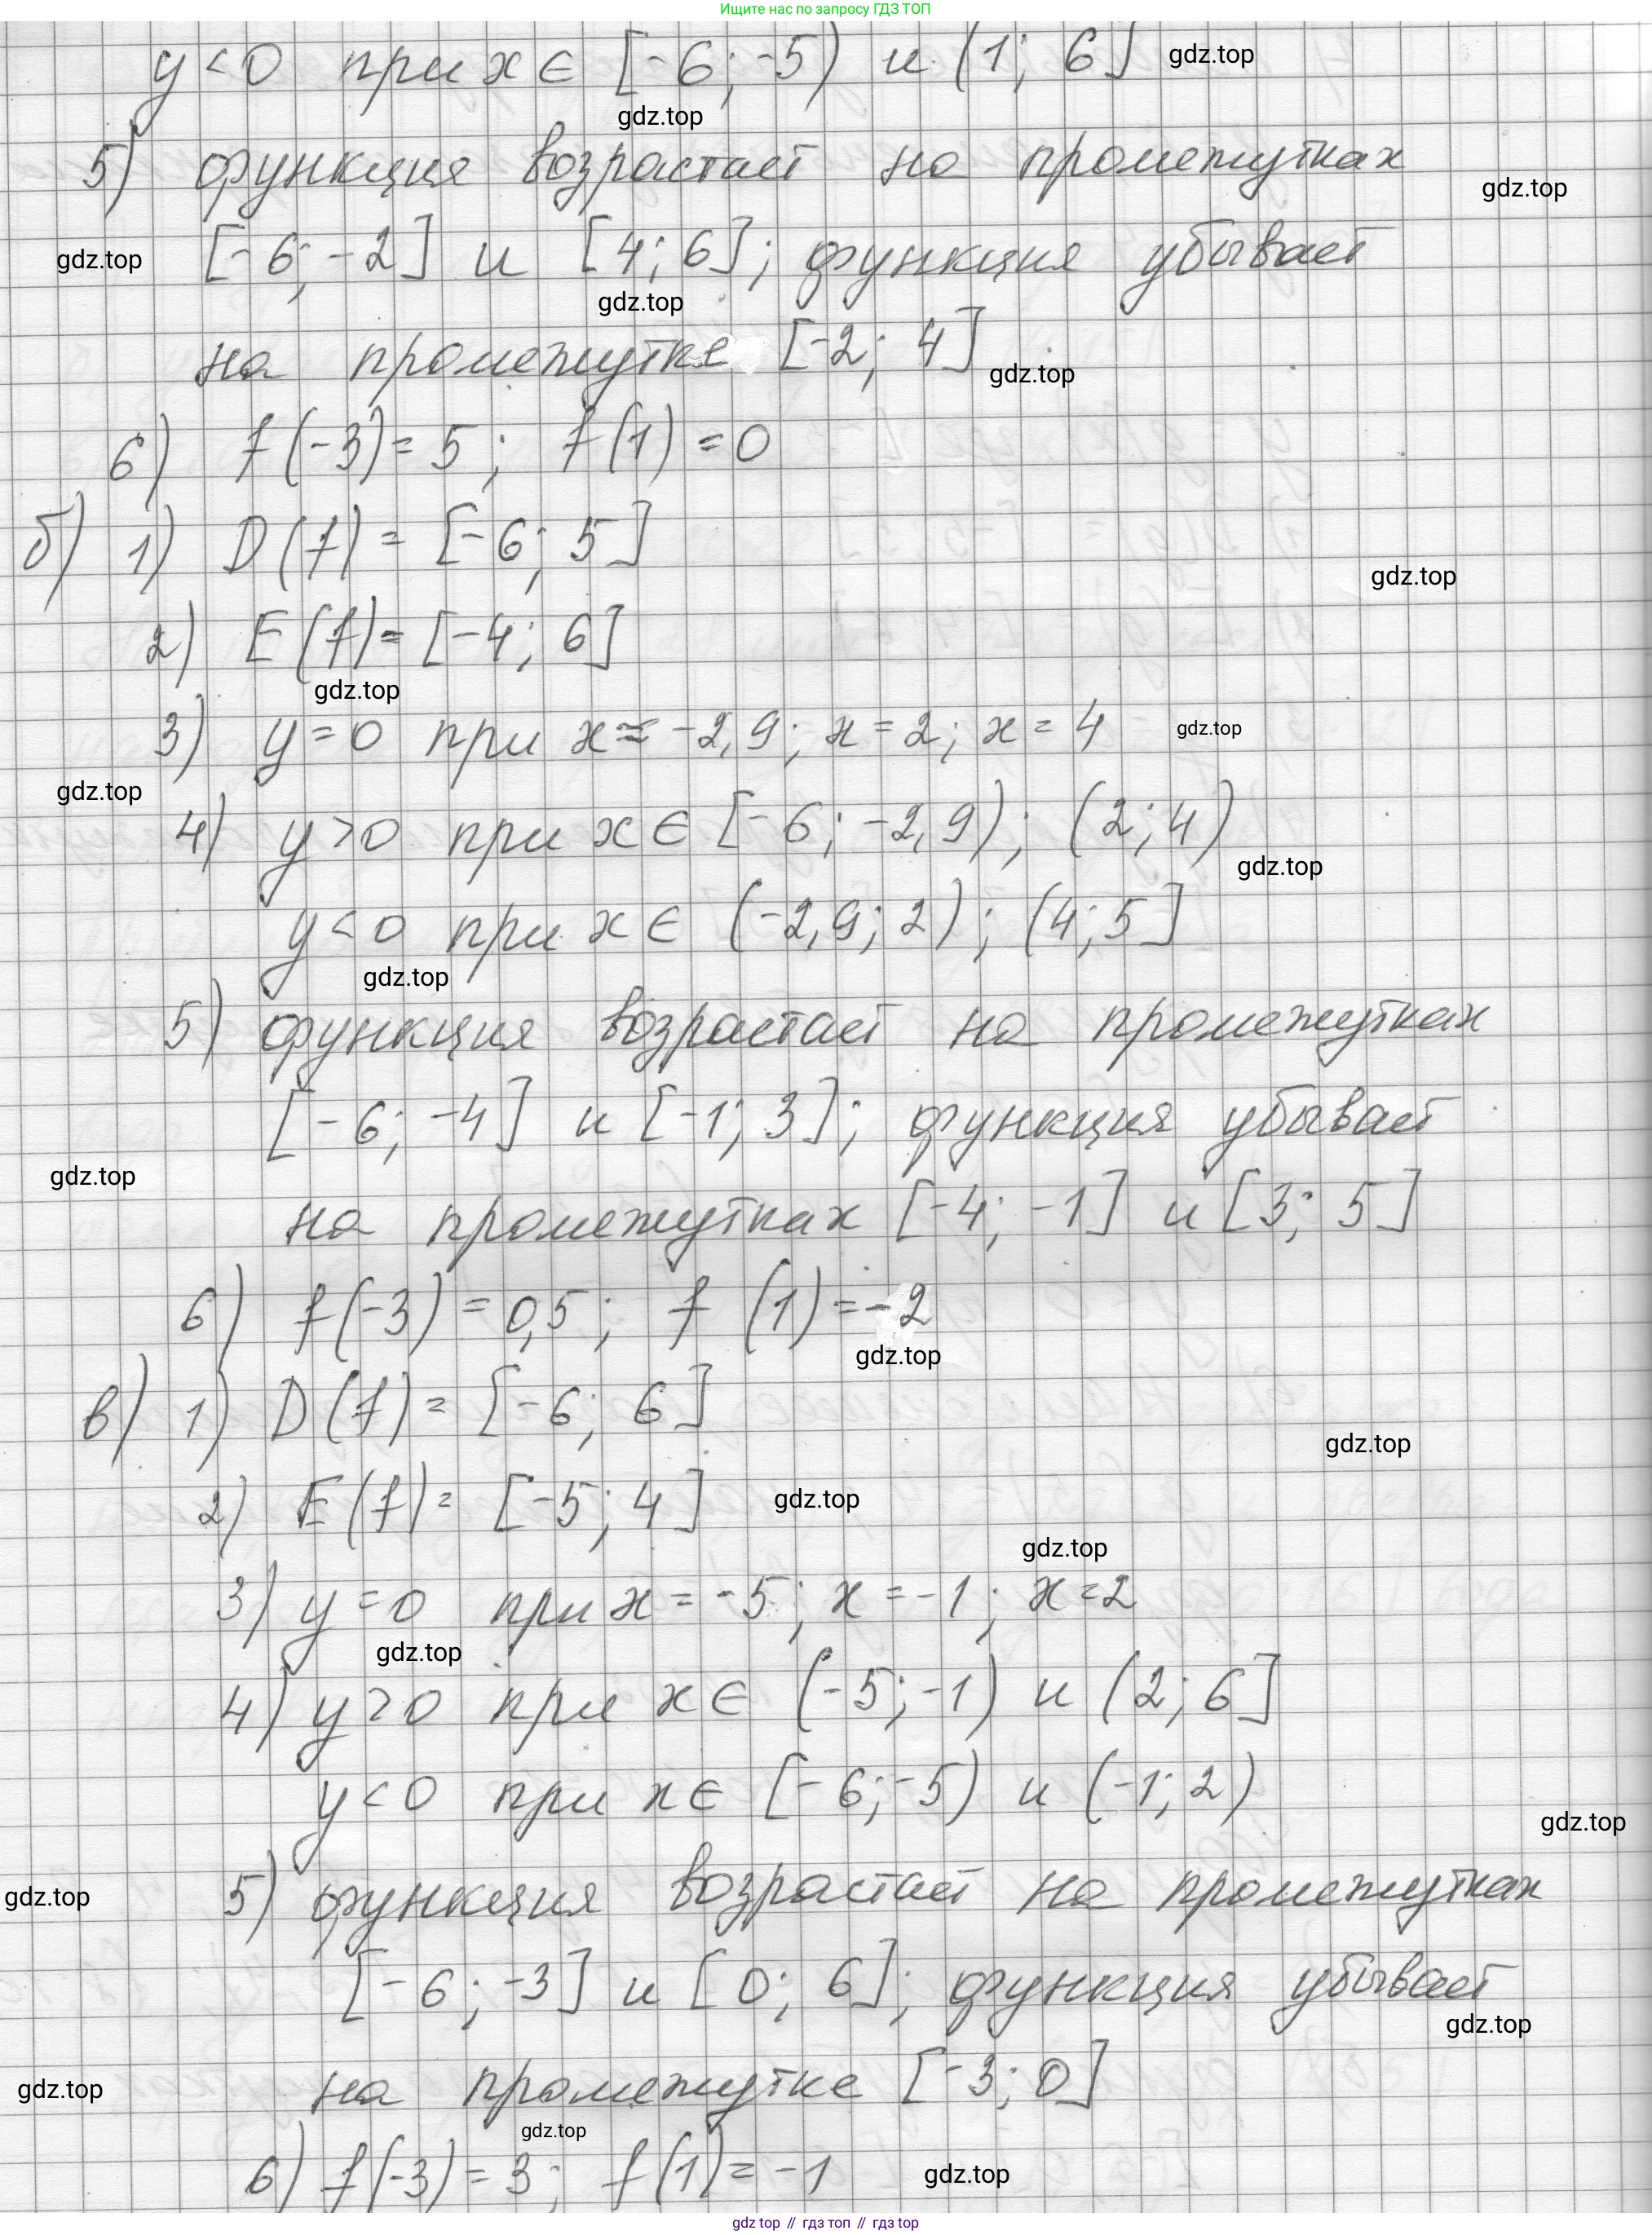 Ищите нас по запросу ГДЗ ТОП
y < 0 при x ∈ [-6; -5) и (1; 6] gdz.top
gdz.top
5) функция возрастает на промежутках
gdz.top
gdz.top [-6; -2] и [4; 6]; функция убывает
gdz.top
на промежутке [-2; 4]
gdz.top
6) f(-3) = 5; f(1) = 0
б) 1) D(f) = [-6; 5]
gdz.top
2) E(f) = [-4; 6]
gdz.top
3) y = 0 при x ≈ -2,9; x = 2; x = 4 gdz.top
gdz.top
4) y > 0 при x ∈ [-6; -2,9); (2; 4)
gdz.top
y < 0 при x ∈ (-2,9; 2); (4; 5]
gdz.top
5) функция возрастает на промежутках
[-6; -4] и [-1; 3]; функция убывает
gdz.top
на промежутках [-4; -1] и [3; 5]
6) f(-3) = 0,5; f(1) = -2
gdz.top
в) 1) D(f) = [-6; 6]
gdz.top
2) E(f) = [-5; 4] gdz.top
gdz.top
3) y = 0 при x = -5; x = -1; x = 2
gdz.top
4) y > 0 при x ∈ (-5; -1) и (2; 6]
y < 0 при x ∈ [-6; -5) и (-1; 2)
gdz.top
gdz.top 5) функция возрастает на промежутках
[-6; -3] и [0; 6]; функция убывает
gdz.top
gdz.top на промежутке [-3; 0]
gdz.top
6) f(-3) = 3; f(1) = -1 gdz.top
gdz top // гдз топ // гдз top